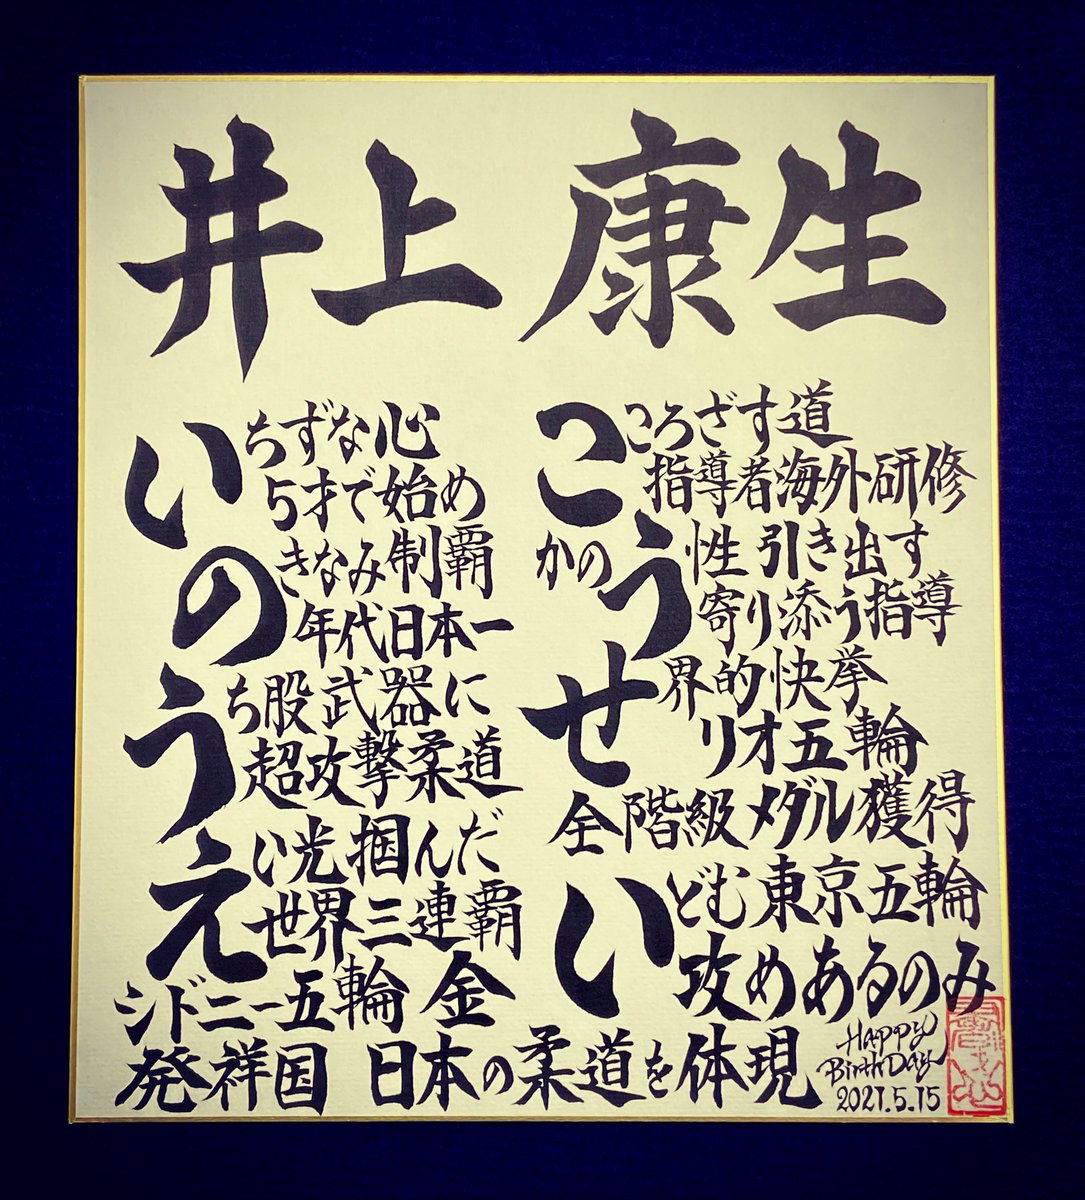 井上 康生
いちずな心
5才で始め
のきなみ制覇
年代日本一
うち股武器に
超攻撃柔道
えい光掴んだ
世界三連覇
シドニー五輪 金
こころざす道
指導者海外研修
かのう性引き出す
寄り添う指導
せ界的快挙
リオ五輪
全階級メダル獲得
いどむ東京五輪
攻めあるのみ
発祥国 日本の柔道を体現
Happy
BirthDay
2021.5.15